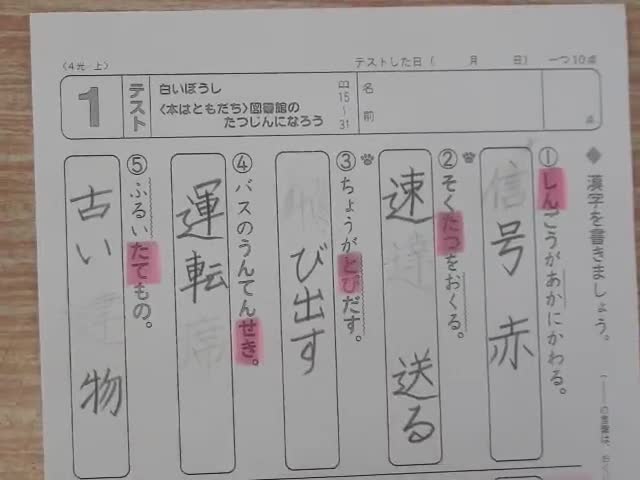 〈4光・上〉
テストした日（　　月　　日）　一つ10点
1
テスト
白いぼうし
〈本はともだち〉図書館の
たつじんになろう
15〜31
名前
点
◆ 漢字を書きましょう。
①しんごうがあかにかわる。
信号 赤
②そくたつをおくる。
速達 送る
③ちょうがとびだす。
飛び出す
④バスのうんてんせき。
運転席
⑤ふるいたてもの。
古い 建物